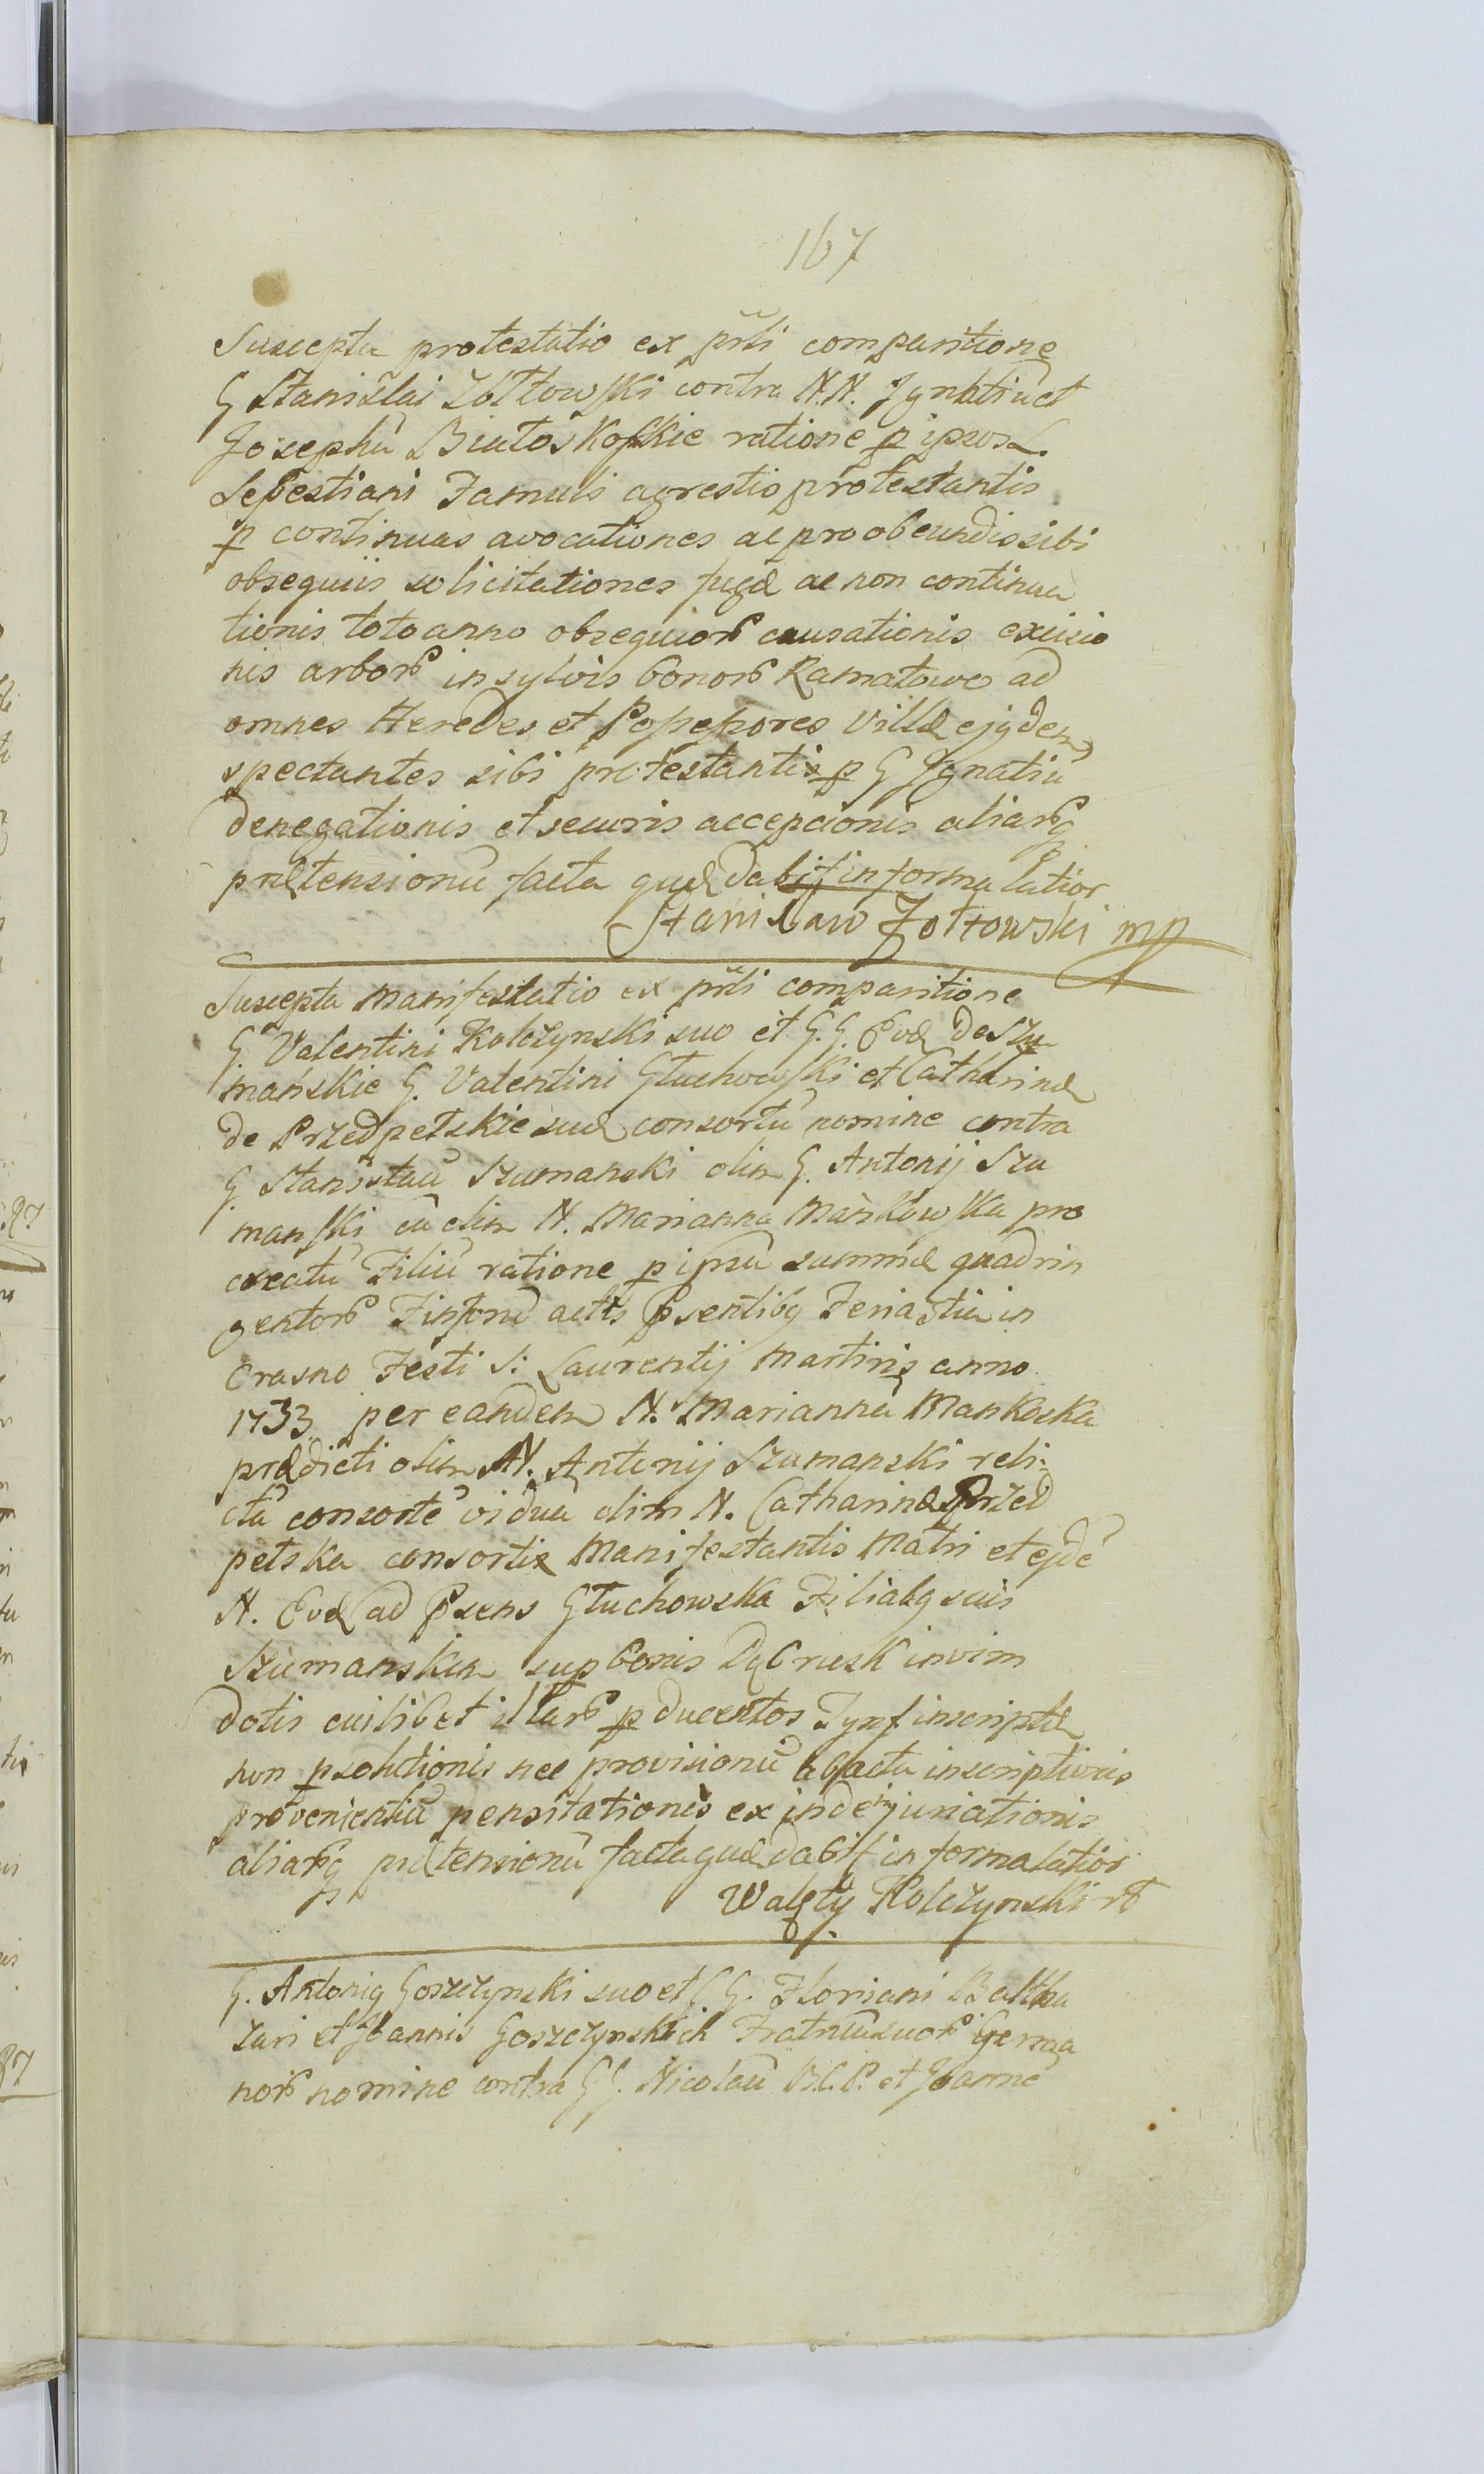 167
Suscepta protestatio ex pñti comparitione
G Stanislai Zołtowski contra N.N. Ignatiũ et
Josephũ Białoskoskie ratione p ipsos L.
Sebestiani Famuli agrestis protestantis
p continuas avocationes ac pro obeundis sibi
obsequiis solicitationes fugæ ac non continua
tionis toto anno obsequior̃ causationis excisio
nis arbor̃ in sylvis bonor̃ Ramatowo ad
omnes Heredes et Possessores Villæ ejqdem
spectantes sibi protestantis p G Ignatiũ
denegationis et securis accepcionis aliar̃q
prætensionũ facta quæ dabit̃ in forma latior
Stanisław Zołtowski mp
Suscepta manifestatio ex pñti comparitione
G. Valentini Kolczynski suo et G.G. Evæ de Szu
mańskie G. Valentini Głuchowski et Catharinæ
de Przedpełskie suæ consortũ nomine contra
G Stanisłaũ Szumanski olim G. Antonij Szu
manski cũ olim N. Marianna Mańkowska pro
creatũ Filiũ ratione p ipsũ summæ quadrin
gentor̃ Tinfonũ actis p̃sentibq Feria 3tia in
Crasno Festi S: Laurentij Martiris anno
1733 per eandem N. Mariannã Mankoska
prædicti olim N. Antonij Szumanski reli:
ctã consortẽ viduã olim N. Catharinæ Przed
pełska consortis Manifestantis Matri et ejdẽ
N. Evæ ad p̃sens Głuchowska Filiabq suis
Szumanskim sup bonis Dąbrusk in vim
dotis cuilibet illar̃ p ducentos Tynf inscriptæ
non psolutionis nec provisionũ ab actu inscriptionis
provenientiũ pensitationis ex inde injuriationis
aliar̃q prætensionũ facta quæ dabit̃ in forma latior
Walęty Kolczynski rõ
G. Antoniq Goszczynski suo et G G. Floriani Baltha
zari et Joannis Goszczynskich Fratrũ suor̃ Germa
nor̃ nomine contra G G. Nicolaũ B.C.P. et Joannẽ